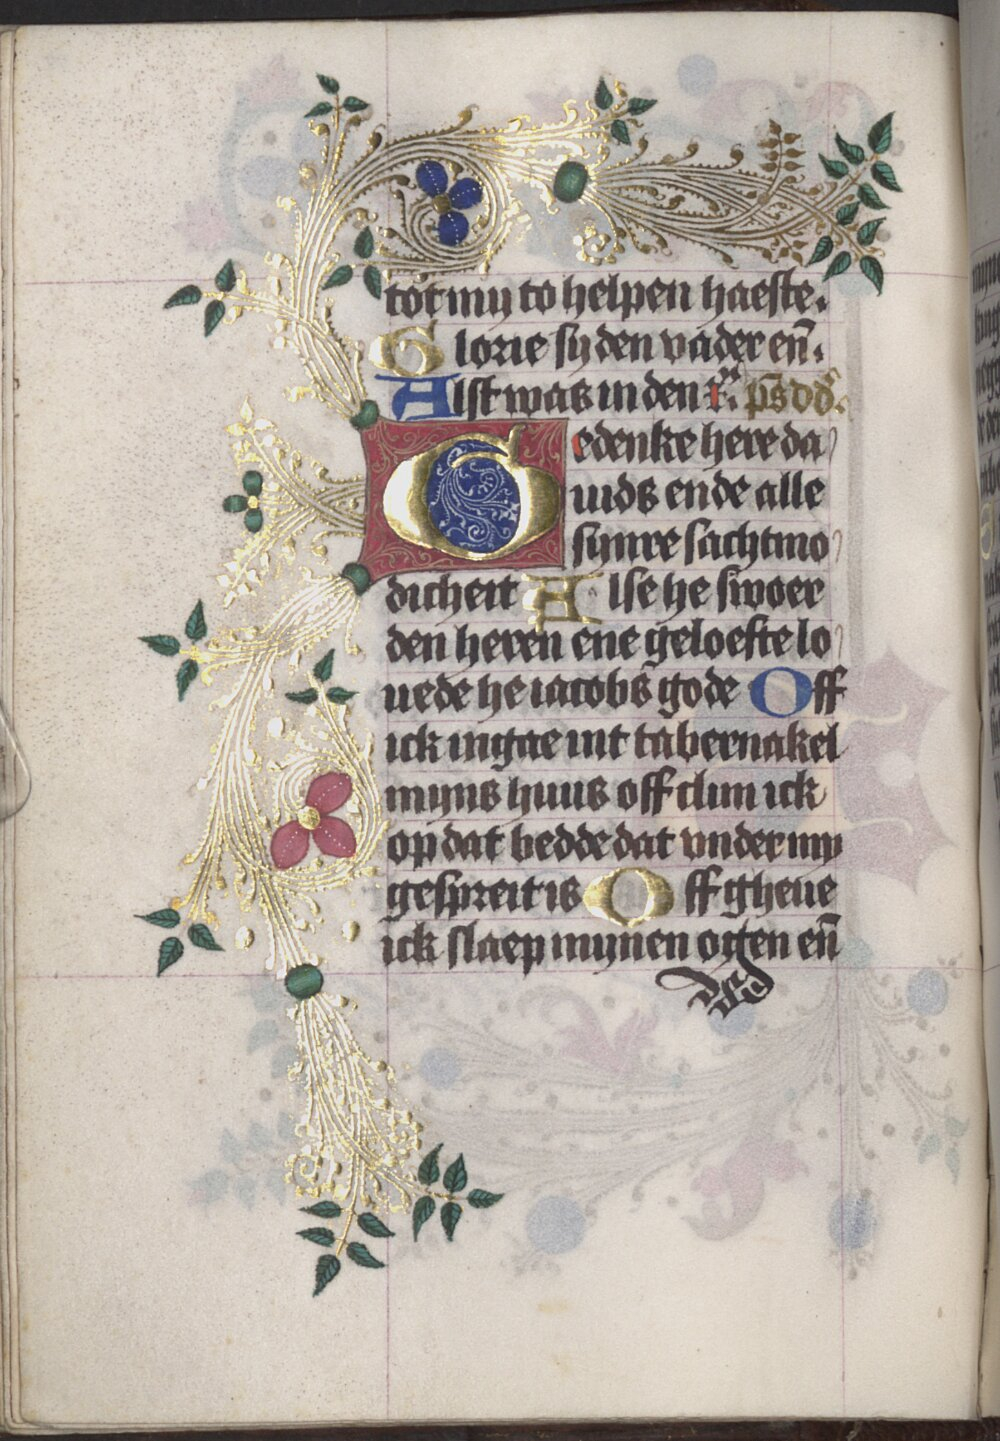 tot my to helpen haeste.
Glorie sy den vader en̄.
Alst was in den ps dd
Gedenke here da
uids ende alle
synre sachtmo
dicheit Alse he swoer
den heren ene geloefte lo
uede he iacobs gode Off
ick ingae int tabernakel
myns huus off clim ick
op dat bedde dat vnder my
gespreit is Off gheue
ick slaep mynen ogen en̄